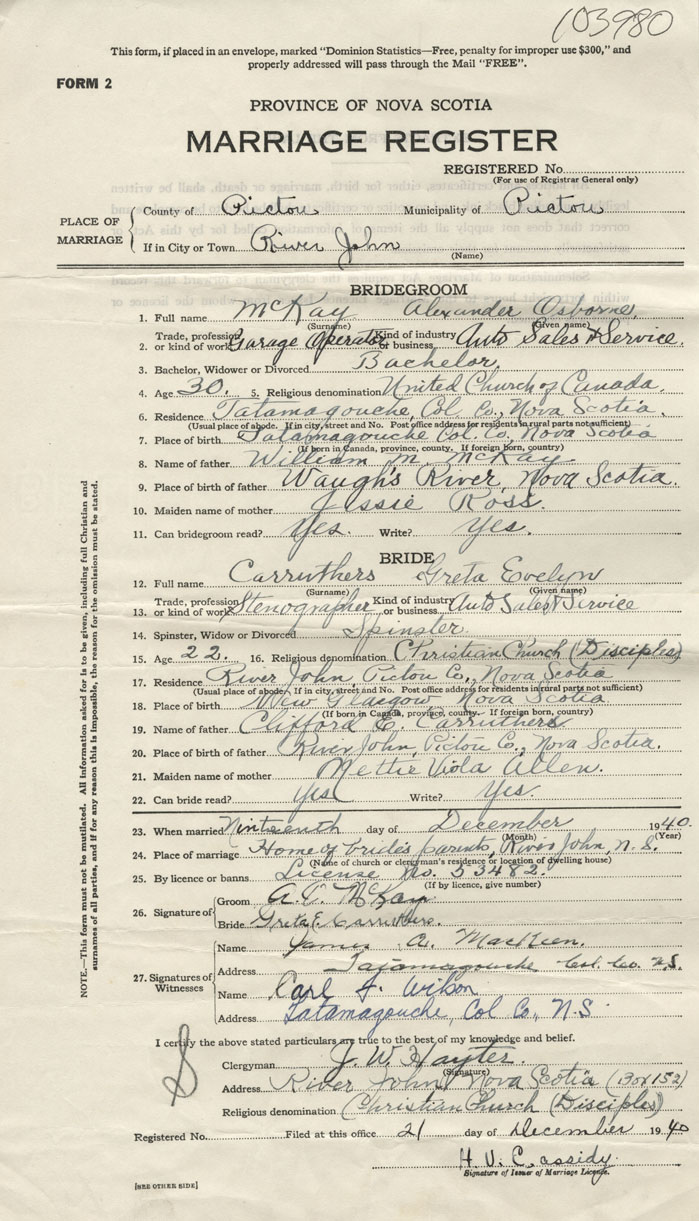 103980
This form, if placed in an envelope, marked "Dominion Statistics—Free, penalty for improper use $300," and
properly addressed will pass through the Mail "FREE".
FORM 2
PROVINCE OF NOVA SCOTIA
MARRIAGE REGISTER
REGISTERED No.
(For use of Registrar General only)
PLACE OF MARRIAGE
County of Pictou Municipality of Pictou
If in City or Town River John
(Name)
BRIDEGROOM
1. Full name McKay Alexander Osborne
(Surname) (Given name)
2. Trade, profession or kind of work Garage Operator Kind of industry or business Auto Sales & Service.
3. Bachelor, Widower or Divorced Bachelor
4. Age 30. 5. Religious denomination United Church of Canada.
6. Residence Tatamagouche, Col. Co., Nova Scotia.
(Usual place of abode. If in city, street and No. Post office address for residents in rural parts not sufficient)
7. Place of birth Tatamagouche Col. Co, Nova Scotia
(If born in Canada, province, county. If foreign born, country)
8. Name of father William M. McKay
9. Place of birth of father Waugh's River, Nova Scotia.
10. Maiden name of mother Jessie Ross.
11. Can bridegroom read? Yes. Write? Yes.
BRIDE
12. Full name Carruthers Greta Evelyn
(Surname) (Given name)
13. Trade, profession or kind of work Stenographer Kind of industry or business Auto Sales & Service
14. Spinster, Widow or Divorced Spinster
15. Age 22. 16. Religious denomination Christian Church (Disciples)
17. Residence River John, Pictou Co., Nova Scotia
(Usual place of abode. If in city, street and No. Post office address for residents in rural parts not sufficient)
18. Place of birth New Glasgow Nova Scotia
(If born in Canada, province, county. If foreign born, country)
19. Name of father Clifford E. Carruthers
20. Place of birth of father River John, Pictou Co., Nova Scotia.
21. Maiden name of mother Nettie Viola Allen.
22. Can bride read? Yes Write? Yes.
23. When married Ninteenth day of December 1940.
(Month) (Year)
24. Place of marriage Home of bride's parents, River John, N.S.
(Name of church or clergyman's residence or location of dwelling house)
25. By licence or banns License No. 53482.
(If by licence, give number)
26. Signature of
Groom A.O. McKay
Bride Greta E. Carruthers.
27. Signatures of Witnesses
Name James A. MacKeen.
Address Tatamagouche Col. Co. N.S.
Name Carl F. Wilson
Address Tatamagouche, Col Co, N.S.
I certify the above stated particulars are true to the best of my knowledge and belief.
Clergyman J. W. Hayter.
(Signature)
Address River John, Nova Scotia (Box 152)
Religious denomination (Christian Church (Disciples)
Registered No. Filed at this office 21 day of December 1940
H. V. Cassidy.
Signature of Issuer of Marriage License.
[SEE OTHER SIDE]
NOTE.—This form must not be mutilated. All information asked for is to be given, including full Christian and
surnames of all parties, and if for any reason this is impossible, the reason for the omission must be stated.